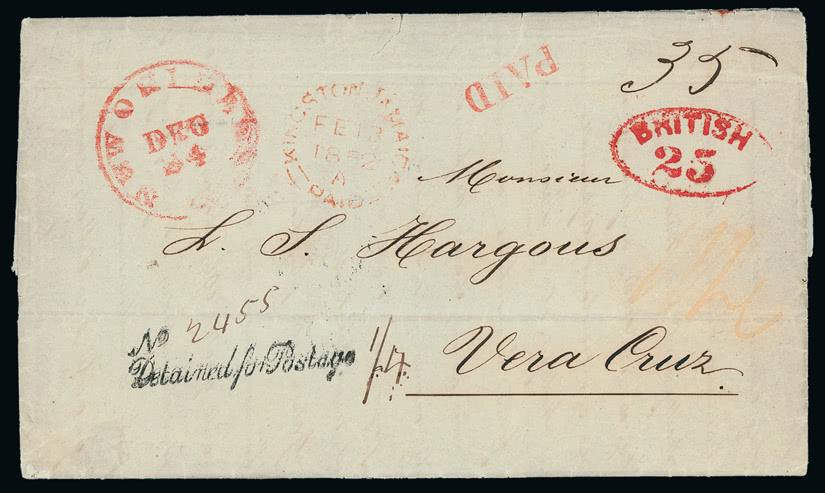 NEW ORLEANS
DEC
24
KINGSTON JAMAICA
FE 13
1852
A
PAID
PAID
35
BRITISH
25
Monsieur
L. S. Hargous
Vera Cruz
No 2455
Detained for Postage
1/4